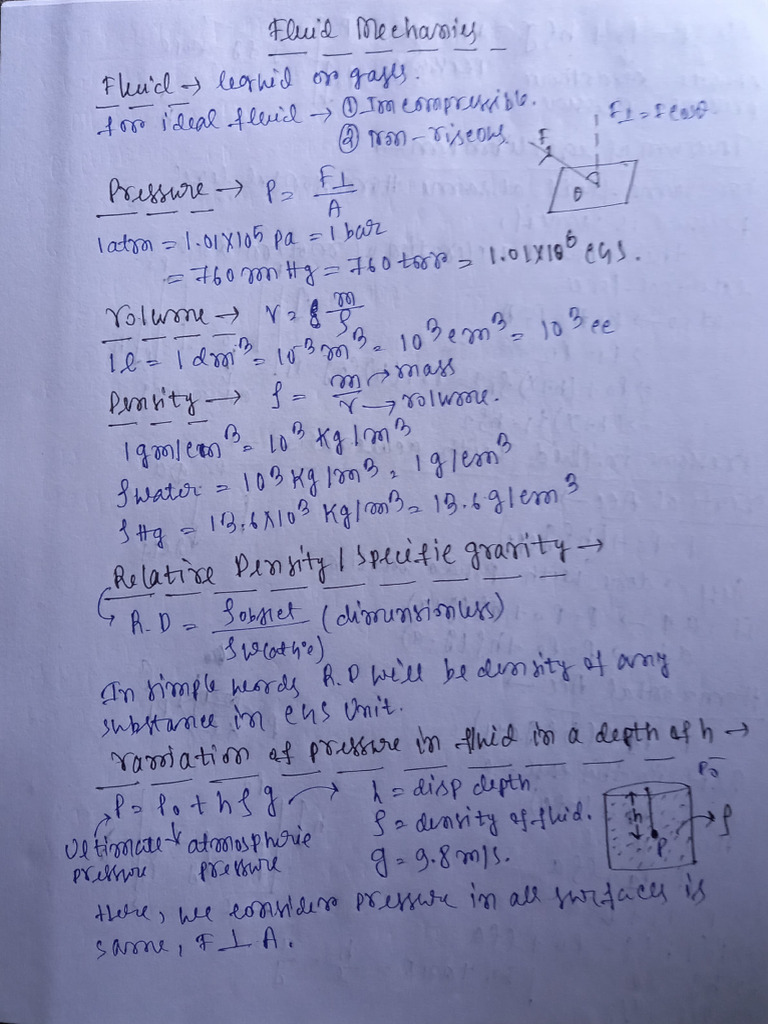 Fluid Mechanics
Fluid → liquid or gases.
for ideal fluid → ① Incompressible.
② Non-viscous
F⊥ = Fcosθ
F
θ
Pressure → P = F⊥/A
1atm = 1.01×10⁵ Pa = 1 bar
= 760 mm Hg = 760 torr = 1.01×10⁶ CGS.
Volume → V = m/ρ
1l = 1dm³ = 10⁻³m³ = 10³cm³ = 10³cc
Density → ρ = m/V → mass → volume.
1gm/cm³ = 10³ Kg/m³
ρwater = 10³ Kg/m³ = 1g/cm³
ρHg = 13.6×10³ Kg/m³ = 13.6g/cm³
Relative Density / Specific gravity →
R.D = ρobject/ρw(at 4°c) (dimensionless)
In simple words R.D will be density of any
substance in CGS Unit.
Variation of pressure in fluid in a depth of h →
P = P₀ + hρg → h = disp depth
ρ = density of fluid.
g = 9.8m/s.
Ultimate pressure
atmospheric pressure
P₀
h
P
ρ
Here, we consider pressure in all surfaces is
same, F⊥A.